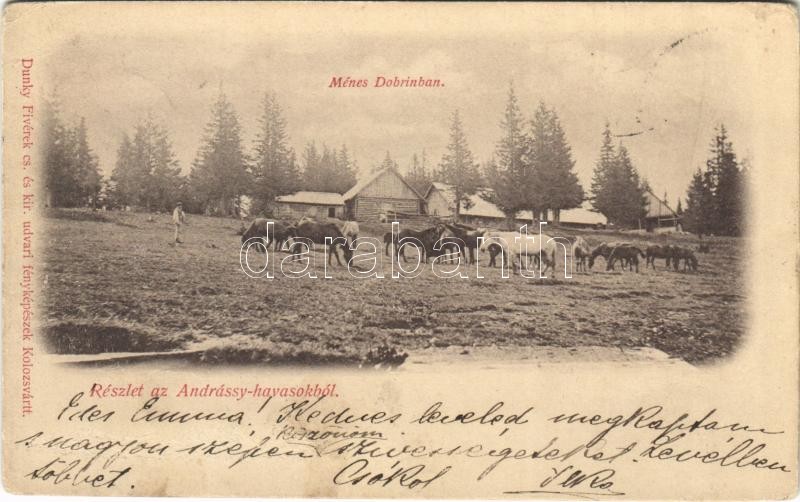 Ménes Dobrinban.
Dunky Fivérek cs. és kir. udvari fényképészek Kolozsvártt.
darabanth
Részlet az Andrássy-havasokból.
Édes Emma! Kedves leveled megkaptam
s nagyon szépen köszönöm szivességeteket. Levélben
többet. Csókol Ilka